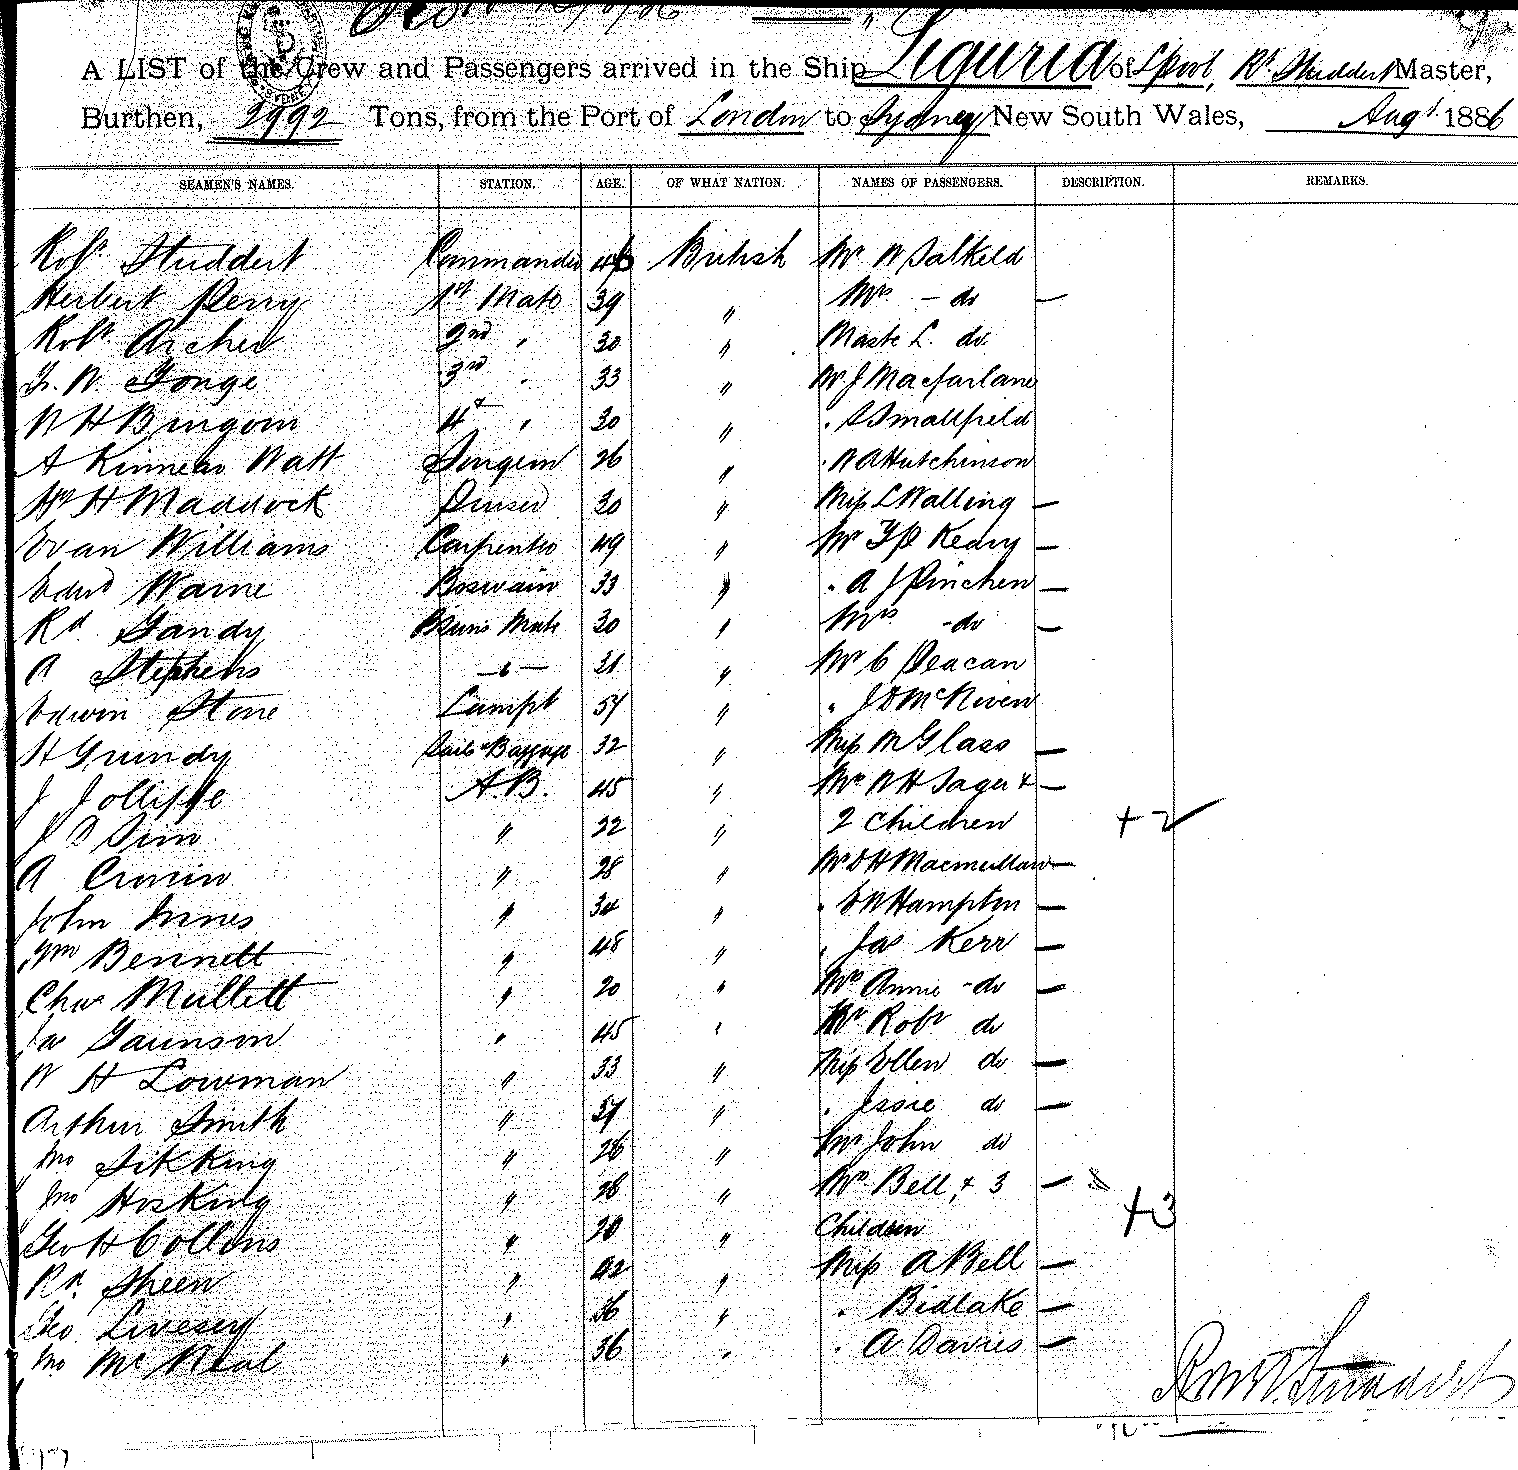 A LIST of the Crew and Passengers arrived in the Ship Liguria of L'pool, Rt. Studdert Master,
Burthen, 2992 Tons, from the Port of London to Sydney New South Wales, Augt 1886
SEAMEN'S NAMES. STATION. AGE. OF WHAT NATION. NAMES OF PASSENGERS. DESCRIPTION. REMARKS.
Robt Studdert Commander 46 British Mr W Salkeld
Herbert Perry 1st Mate 39 " Mrs - do —
Robt Archer 2nd " 30 " Master L. do.
W. Gonge 3rd " 33 " Mr J Macfarlane
W H Bingom 4th " 30 " " S Smallfield
A Kinnear Watt Surgeon 26 " " W A Hutchinson
Wm H Maddock Purser 30 " Miss L Walling —
Evan Williams Carpenter 49 " Mr Keary —
Edwd Warne Boswain 33 " " A J Pinchen —
Rd Gandy Bsuns Mate 30 " Mrs - do —
A Stephens — " — 31 " Mr C Deacan
Edwin Stone Lampt 54 " " J D McNiven
H Grundy Sails & Baggage 32 " Miss M Glass —
J Jolliffe A.B. 45 " Mrs W H Sager + —
J D Sim " 22 " 2 Children +2
A Cronin " 28 " Mr D H Macmullan —
John Innes " 34 " " E W Hampton —
Wm Bennett " 48 " " Jas Kerr —
Chas Mullett " 20 " Mrs Annie - do —
Jas Gaunson " 45 " Mr Robt do
W H Lowman " 33 " Miss Ellen do —
Arthur Smith " 37 " " Jessie do —
Jno Sikking " 26 " Mr John do
Jno Hosking " 28 " Mrs Bell, + 3 —
Geo H Collins " 20 " Children +3
Rd. Sheen " 42 " Miss A Bell —
Geo. Livesey " 36 " " Bidlake —
Jno. McNeal " 36 " " A Davies —